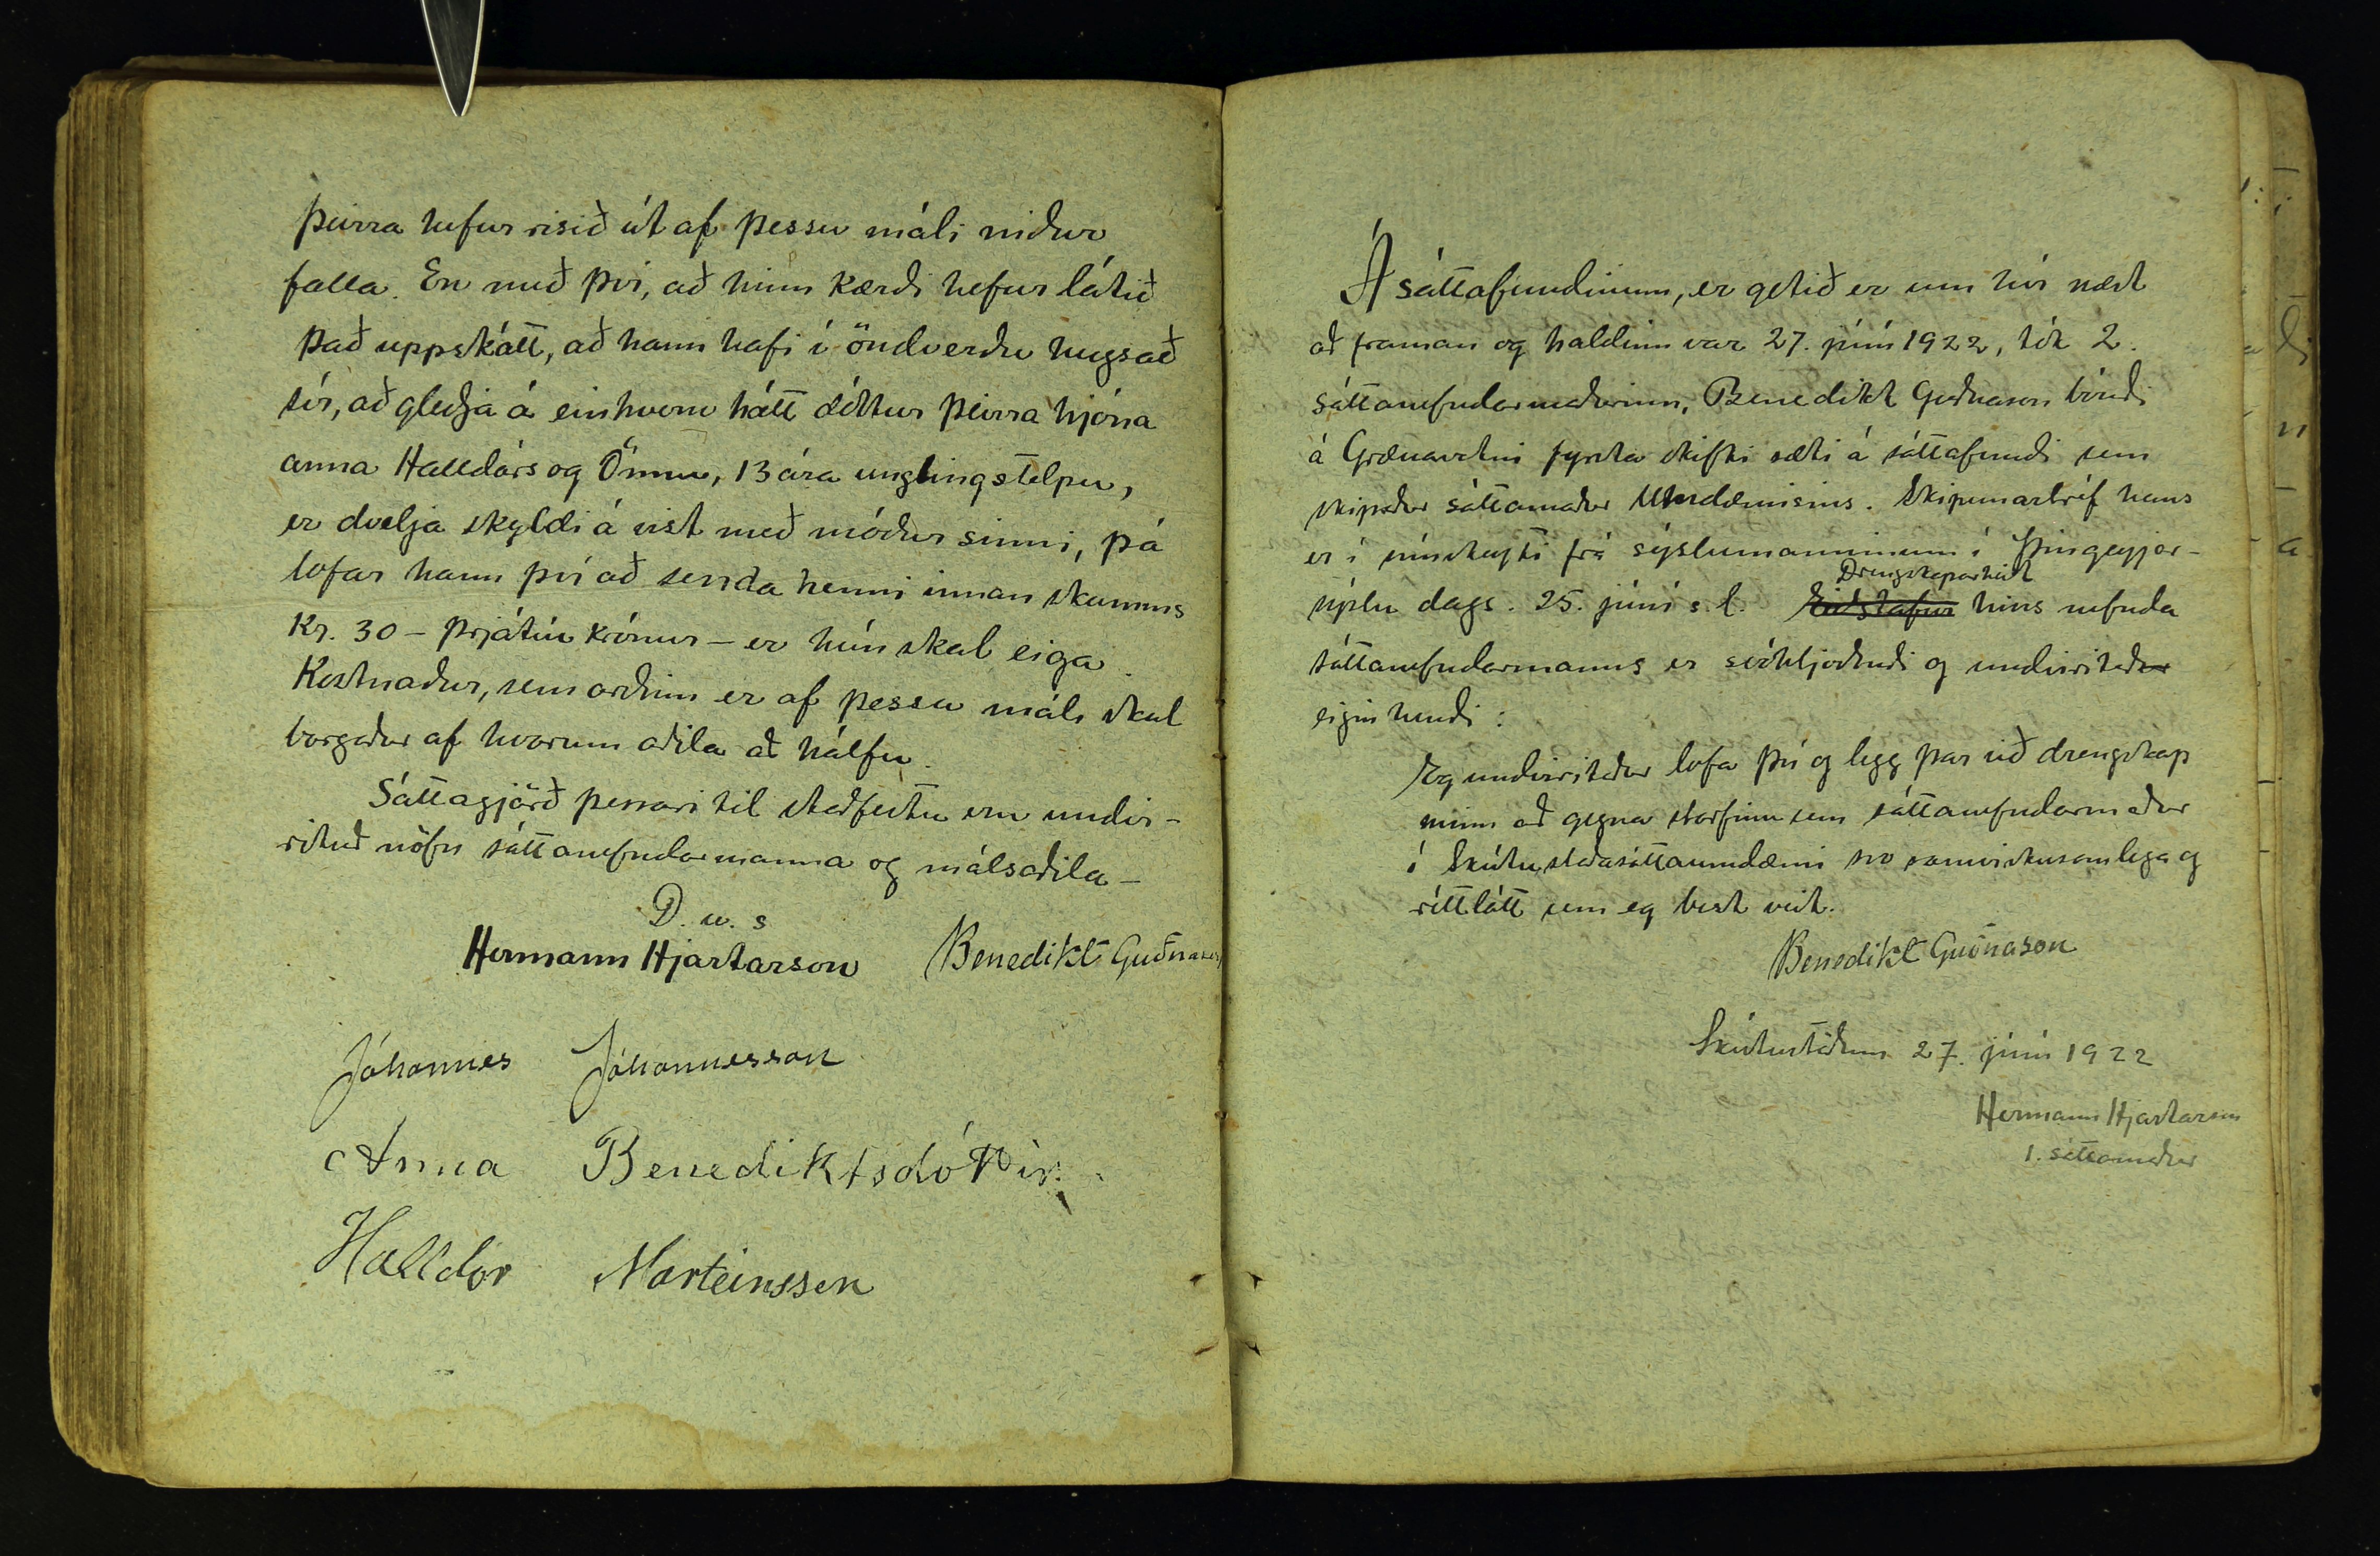 þeirra hefur risið út af þessu máli niður
falla. En með því, að hinn kærði hefur látið
það uppskátt, að hann hafi í öndverðu hugsað
sér, að gleðja á einhvern hátt dóttur þeirra hjóna
anna Halldórs og Önnu, 13 ára unglingstelpu,
er dvelja skyldi á vist með móður sinni, þá
lofar hann því að senda henni innan skamms
Kr. 30 - þrjátíu krónur - er hún skal eiga
Kostnaður, sem orðinn er af þessu máli skal
borgaður af hvorum aðila að hálfu.
Sáttagjörð þessari til staðfestu eru undir-
rituð nöfn sáttanefndarmanna og málsaðila -
D. u. s
Hermann Hjartarson Benedikt Guðnason
Jóhannes Jóhannesson
Anna Benediktsdóttir.
Halldór Marteinsson
Á sáttafundinum, er getið er um hér næst
að framan og haldinn var 27. júní 1922, tók 2.
sáttanefndarmaðurinn, Benedikt Guðnason bóndi
á Grænavatni fyrsta skifti sæti á sáttafundi sem
skipaður sáttamaður Umdæmisins. Skipunarbréf hans
er í símskeyti frá sýslumanninum í Þingeyjar-
sýslu dags. 25. júní s.l. Eiðstafur Drengskaparheit hins nefnda
sáttanefndarmanns er svohljóðandi og undirritaður
eigin hendi:
Eg undirritaður lofa því og legg þar við drengskap
minn að gegna starfinu sem sáttanefndarmaður
í Skútustaðasáttaumdæmi svo samviskusamlega og
réttlátt sem eg best veit.
Benedikt Guðnason
Skútustöðum 27. júní 1922
Hermann Hjartarson
1. sáttamaður